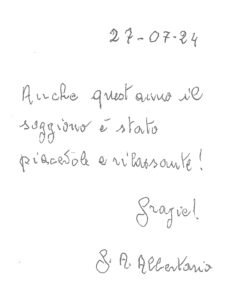 27-07-24
Anche quest'anno il
soggiorno è stato
piacevole e rilassante!
Grazie!
G. A. Albertario